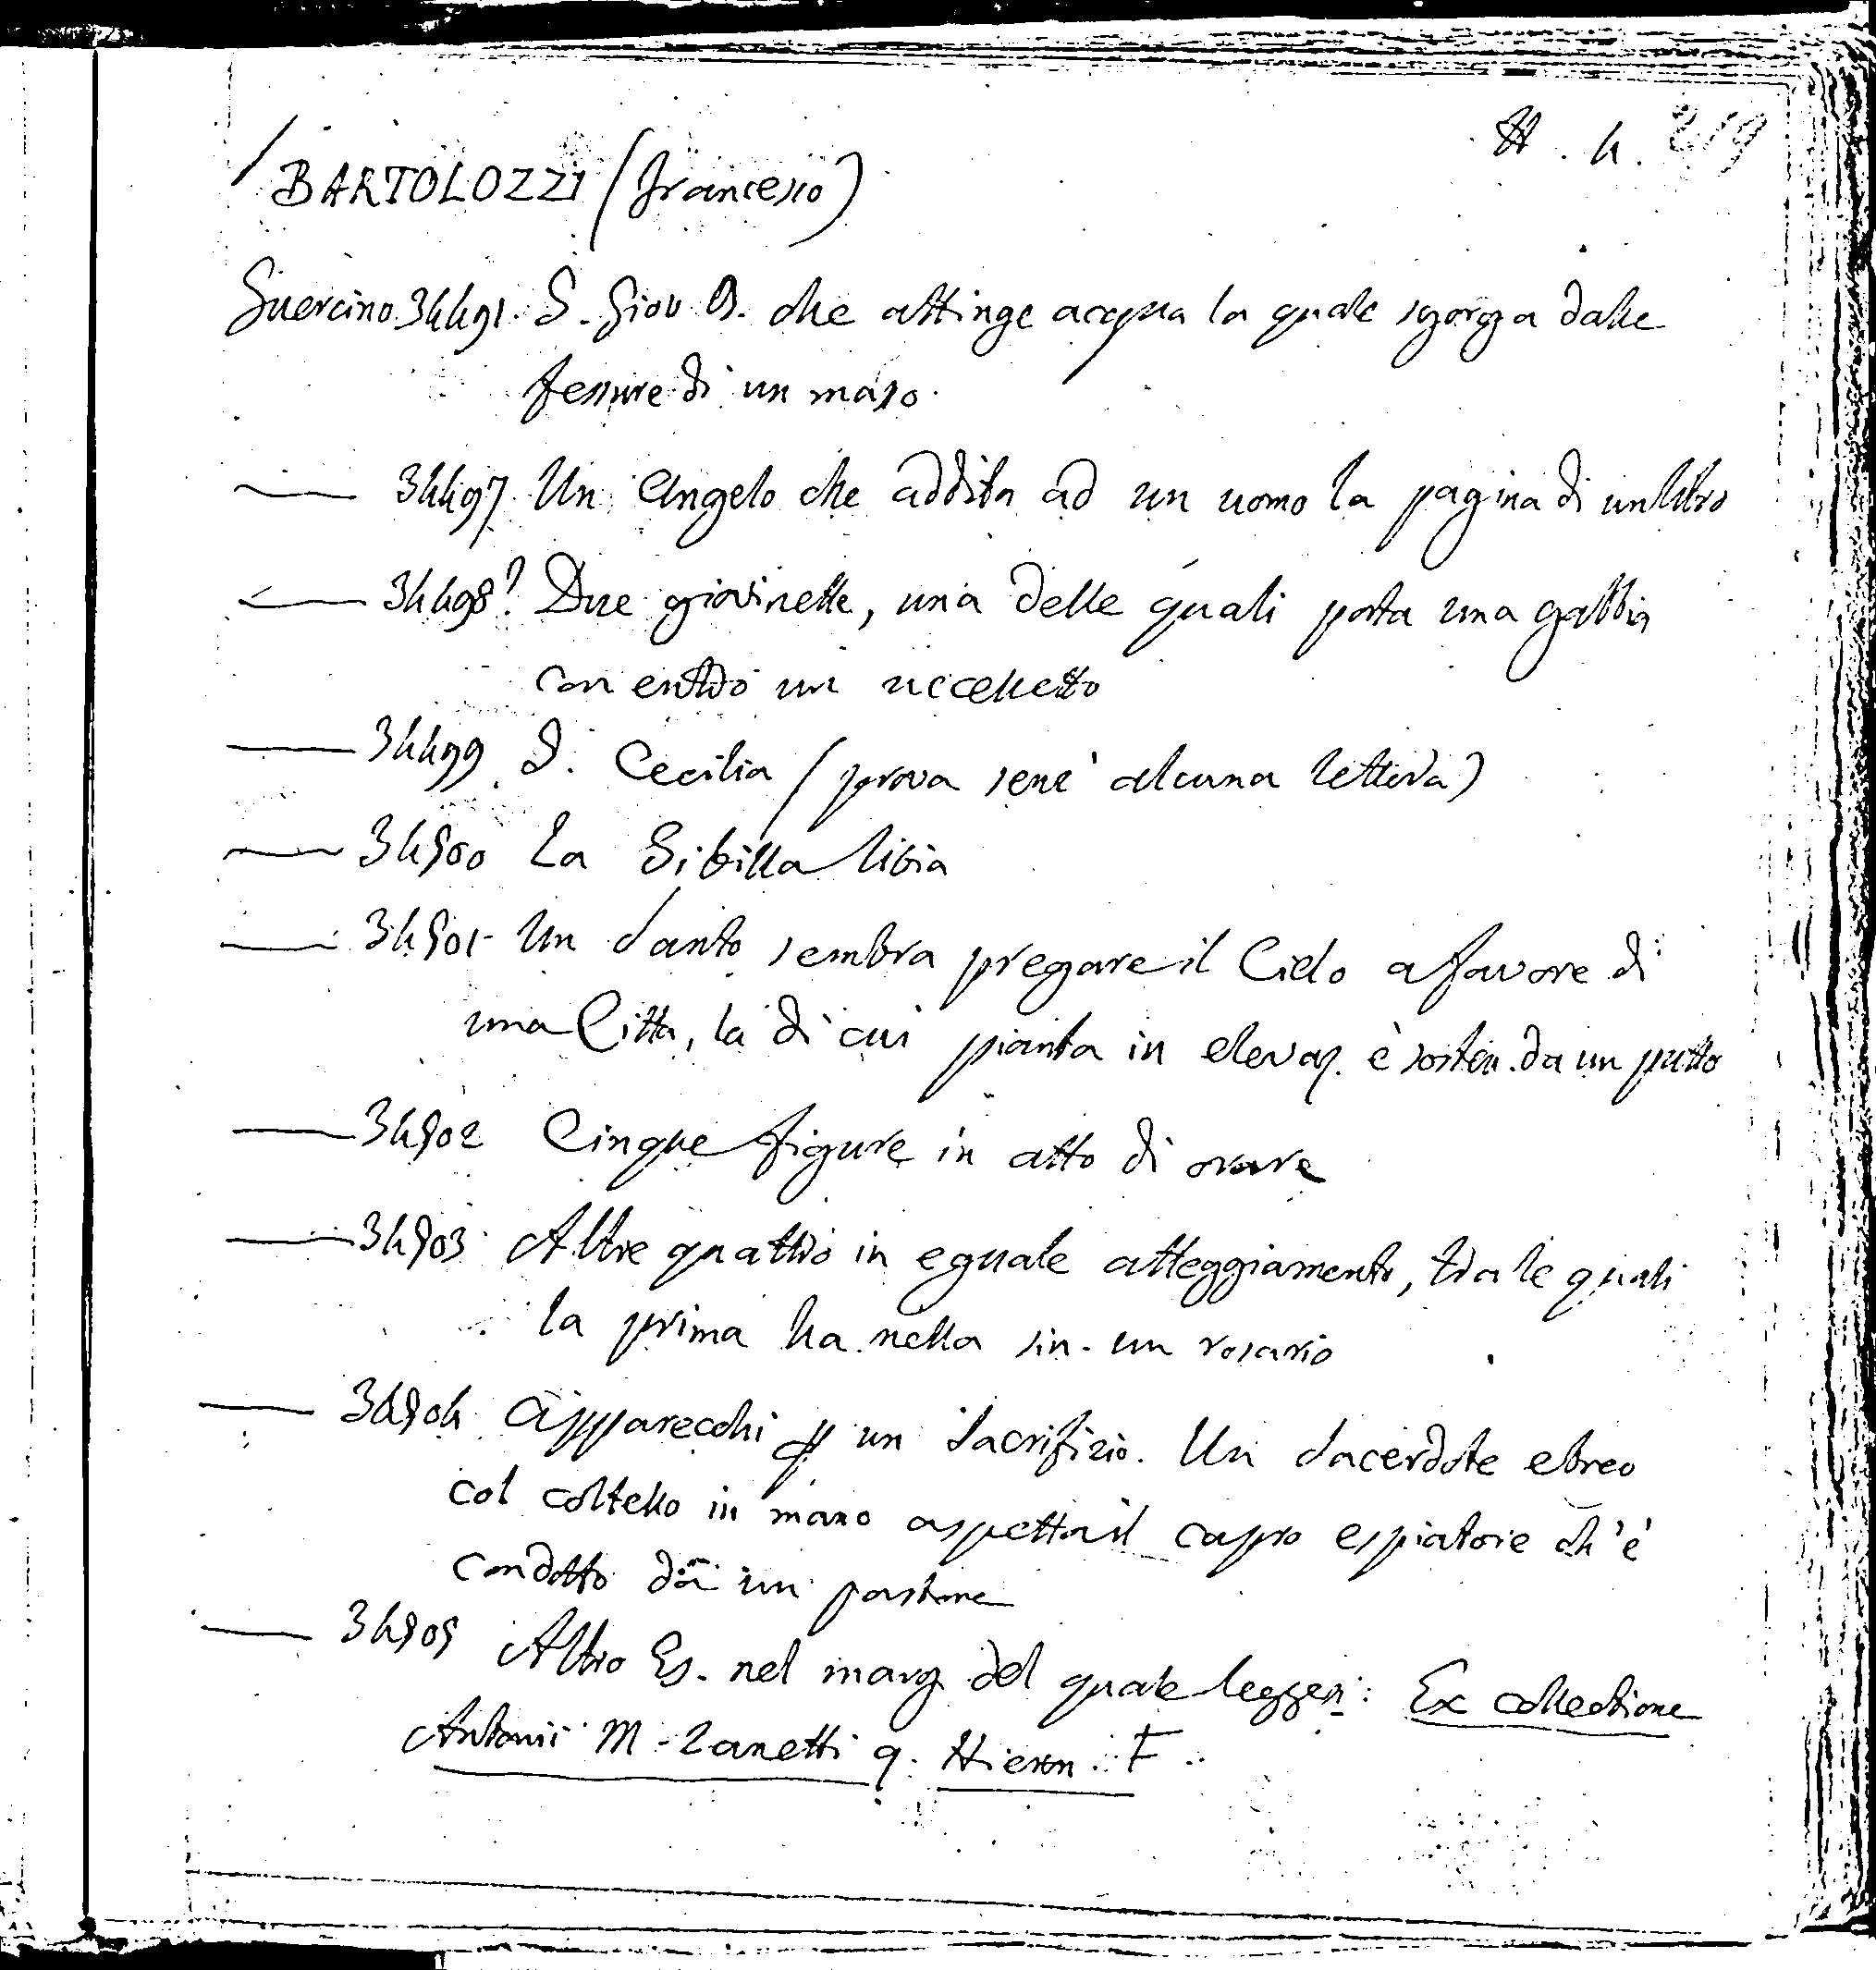 H. 4. 219
BARTOLOZZI (Francesco)
Guercino 34491. S. Giov B. che attinge acqua la quale sgorga dalle
fessure di un masso.
— 34497. Un Angelo che addita ad un uomo la pagina di un libro
— 34498? Due giovinette, una delle quali porta una gabbia
con entro un uccelletto
— 34499 S. Cecilia (prova senz' alcuna lettera)
— 34500 La Sibilla libia
— 34501- Un Santo sembra pregare il Cielo a favore di
una Citta, la di cui pianta in elevaz. è sosten. da un putto
— 34502 Cinque figure in atto di orare
— 34503 Altre quattro in eguale atteggiamento, tra le quali
la prima ha nella sin. un rosario
— 34504 Apparecchi p un Sacrifizio. Un Sacerdote ebreo
col coltello in mano aspetta il capro espiatore ch'è
condotto da un pastore
— 34505 Altro Es. nel marg. del quale leggesi: Ex collectione
Antonii M. Zanetti q. Hieron. F.